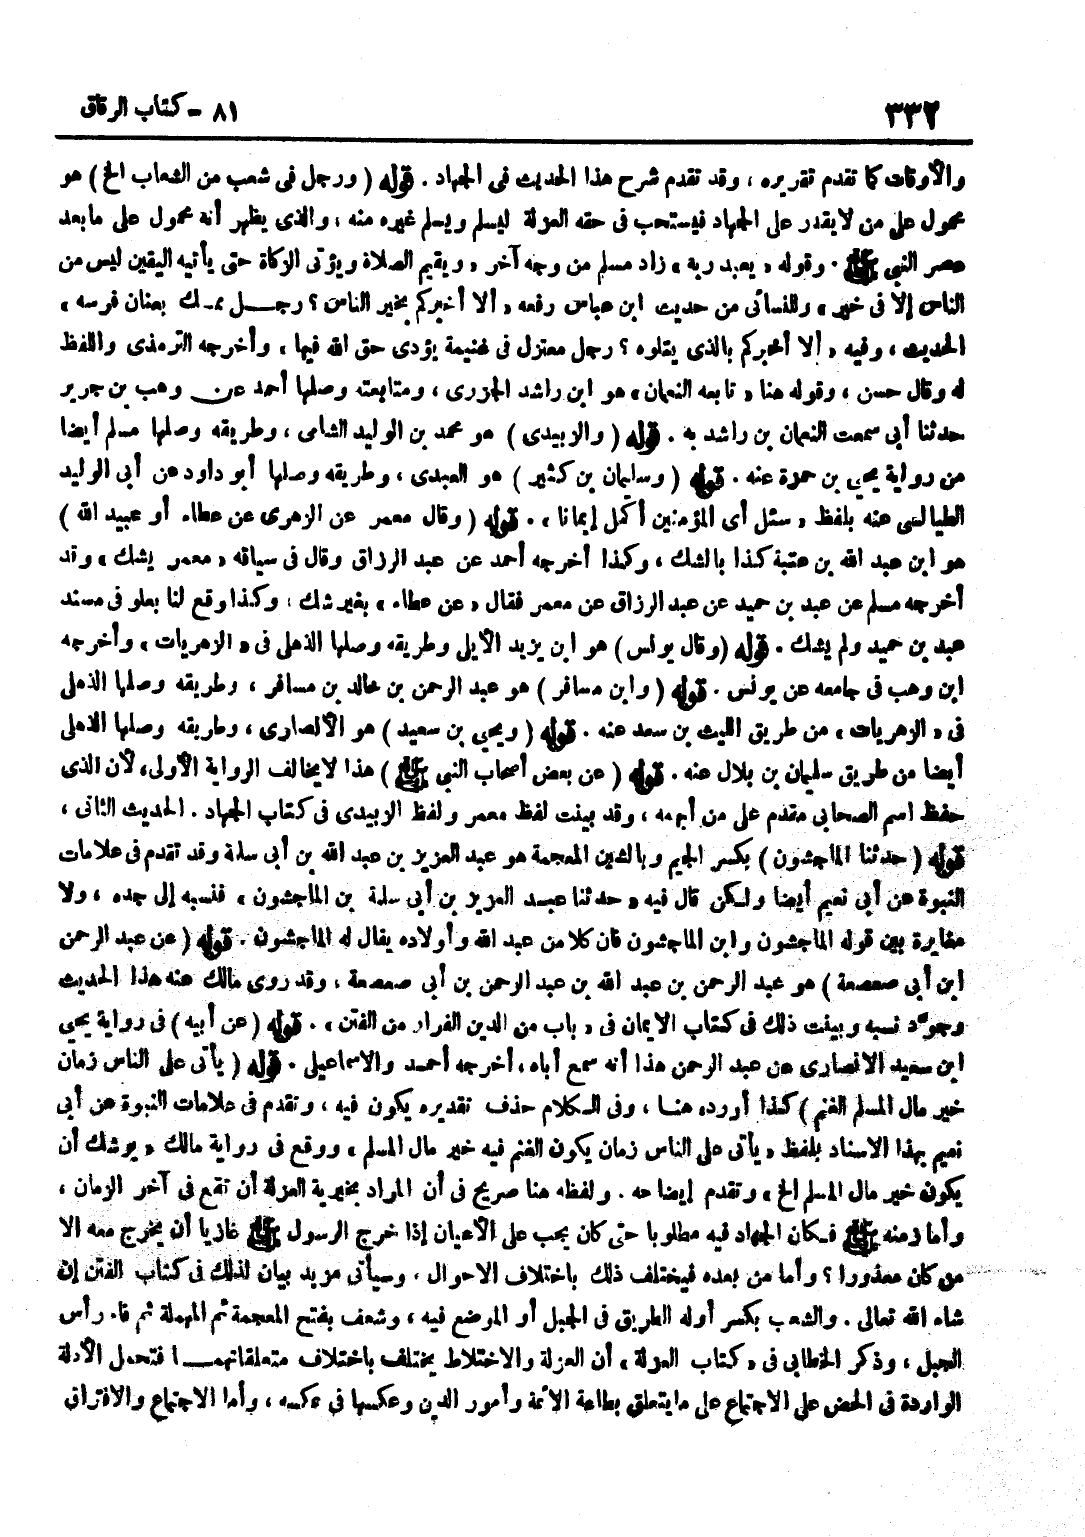 ٣٣٢
٨١ - كتاب الرقاق
والأوقات كما تقدم تقريره ، وقد تقدم شرح هذا الحديث في الجهاد . قوله ( ورجل في شعب من الشعاب الخ ) هو
محمول على من لا يقدر على الجهاد فيستحب في حقه العزلة ليسلم ويسلم غيره منه ، والذي يظهر أنه محمول على ما بعد
عصر النبي ﷺ . وقوله « يعبد ربه » زاد مسلم من وجه آخر « ويقيم الصلاة ويؤتى الزكاة حتى يأتيه اليقين ليس من
الناس إلا في خير » وللنسائي من حديث ابن عباس رفعه « ألا أخبركم بخير الناس ؟ رجل ممسك بعنان فرسه »
الحديث ، وفيه « ألا أخبركم بالذي يتلوه ؟ رجل معتزل في غنيمة يؤدي حق الله فيها » وأخرجه الترمذي واللفظ
له وقال حسن ، وقوله هنا « تابعه النعمان » هو ابن راشد الجزري ، ومتابعته وصلها أحمد عن وهب بن جرير
حدثنا أبي سمعت النعمان بن راشد به . قوله ( والزبيدي ) هو محمد بن الوليد الشامى ، وطريقه وصلها مسلم أيضا
من رواية يحيى بن حمزة عنه . قوله ( وسليمان بن كثير ) هو العبدى ، وطريقه وصلها أبو داود عن أبي الوليد
الطيالسى عنه بلفظ « سئل أي المؤمنين أكمل إيمانا » . قوله ( وقال معمر عن الزهري عن عطاء أو عبيد الله )
هو ابن عبد الله بن عتبة كذا بالشك ، وكذا أخرجه أحمد عن عبد الرزاق وقال في سياقه « معمر يشك » وقد
أخرجه مسلم عن عبد بن حميد عن عبد الرزاق عن معمر فقال « عن عطاء » بغير شك ، وكذا وقع لنا بعلو في مسند
عبد بن حميد ولم يشك . قوله ( وقال يونس ) هو ابن يزيد الأيلي وطريقه وصلها الذهلى في « الزهريات » وأخرجه
ابن وهب في جامعه عن يونس . قوله ( وابن مسافر ) هو عبد الرحمن بن خالد بن مسافر ، وطريقه وصلها الذهلى
في « الزهريات » من طريق الليث بن سعد عنه . قوله ( ويحيي بن سعيد ) هو الأنصارى ، وطريقه وصلها الذهلى
أيضا من طريق سليمان بن بلال عنه . قوله ( عن بعض أصحاب النبي ﷺ ) هذا لا يخالف الرواية الأولى، لأن الذي
حفظ اسم الصحابي مقدم على من أبهمه ، وقد بينت لفظ معمر ولفظ الزبيدى في كتاب الجهاد . الحديث الثاني ،
قوله ( حدثنا الماجشون ) بكسر الجيم وبالشين المعجمة هو عبد العزيز بن عبد الله بن أبي سلمة وقد تقدم في علامات
النبوة عن أبي نعيم أيضا ولكن قال فيه « حدثنا عبد العزيز بن أبي سلمة بن الماجشون » فنسبه إلى جده ، ولا
مغايرة بين قوله الماجشون وابن الماجشون فان كلا من عبد الله وأولاده يقال له الماجشون . قوله ( عن عبد الرحمن
ابن أبي صعصعة ) هو عبد الرحمن بن عبد الله بن عبد الرحمن بن أبي صعصعة ، وقد روى مالك عنه هذا الحديث
وجوّد نسبه وبينت ذلك في كتاب الايمان في « باب من الدين الفرار من الفتن » . قوله ( عن أبيه ) في رواية يحيى
ابن سعيد الانصارى عن عبد الرحمن هذا أنه سمع أباه ، أخرجه أحمد والاسماعيلى . قوله ( يأتى على الناس زمان
خير مال المسلم الغنم ) كذا أورده هنا ، وفى الكلام حذف تقديره يكون فيه ، وتقدم في علامات النبوة عن أبي
نعيم بهذا الاسناد بلفظ « يأتى على الناس زمان يكون الغنم فيه خير مال المسلم » ووقع في رواية مالك « يوشك أن
يكون خير مال المسلم الخ » وتقدم إيضاحه . ولفظه هنا صريح في أن المراد بخيرية العزلة أن تقع في آخر الزمان ،
وأما زمنه ﷺ فكان الجهاد فيه مطلوبا حتى كان يجب على الأعيان إذا خرج الرسول ﷺ غازيا أن يخرج معه الا
من كان معذورا ؟ وأما من بعده فيختلف ذلك باختلاف الاحوال ، وسيأتى مزيد بيان لذلك في كتاب الفتن إن
شاء الله تعالى . والشعب بكسر أوله الطريق في الجبل أو الموضع فيه ، وشعف بفتح المعجمة ثم المهملة ثم فاء رأس
الجبل ، وذكر الخطابى في « كتاب العزلة » أن العزلة والاختلاط يختلف باختلاف متعلقاتهما فتحمل الأدلة
الواردة في الحض على الاجتماع على ما يتعلق بطاعة الائمة وأمور الدين وعكسها في عكسه ، وأما الاجتماع والافتراق